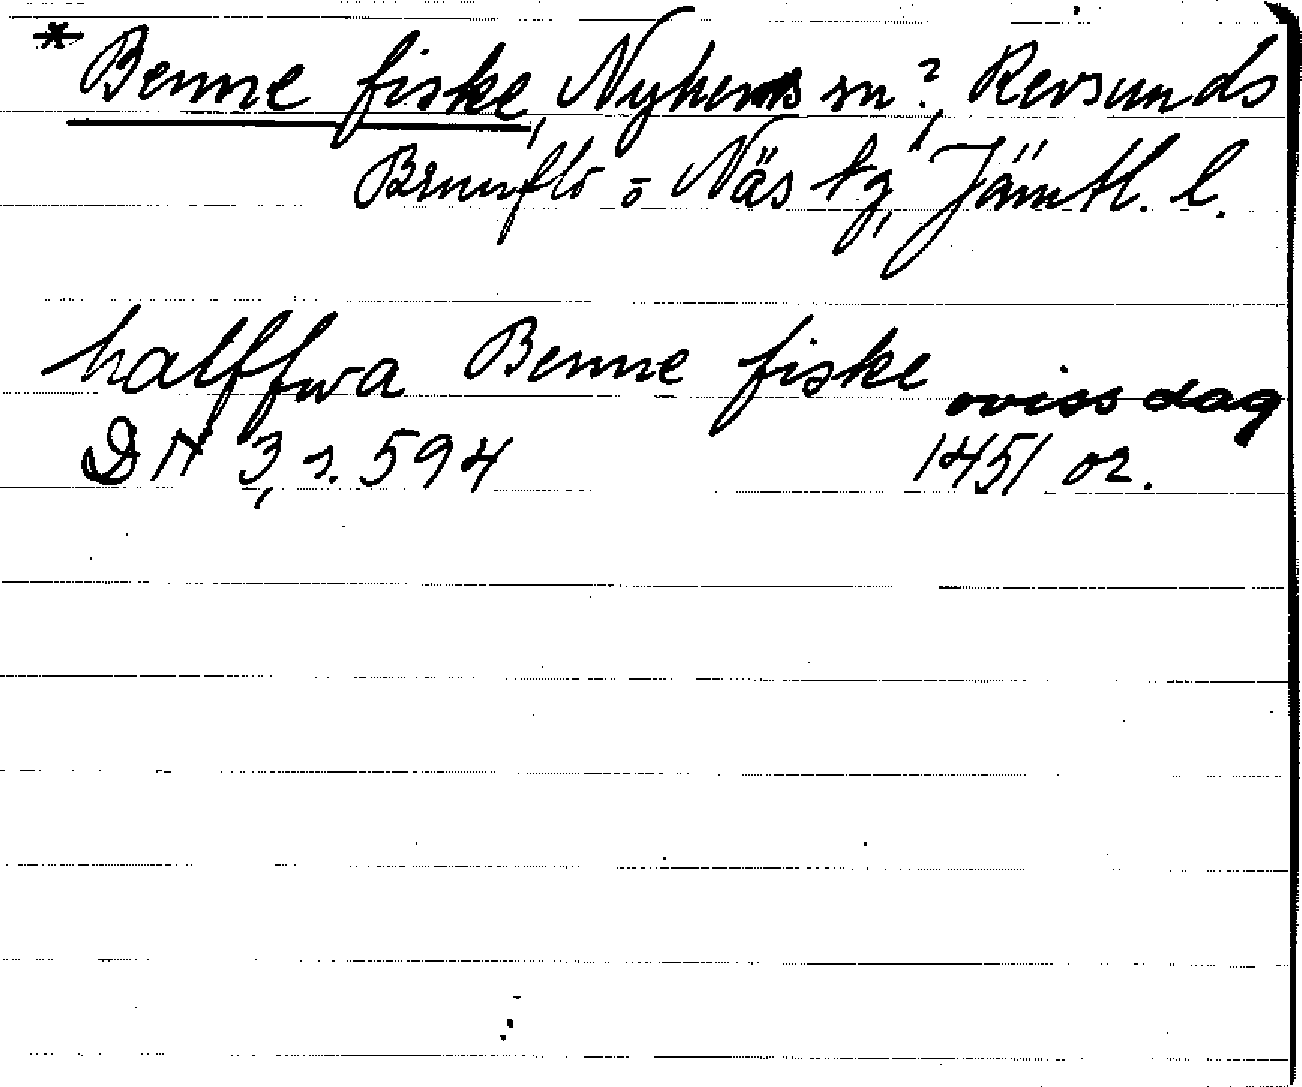 * Benne fiske, Nyhems sn?, Revsunds
Brunflo o Näs tg, Jämtl. l.
halffwa Benne fiske oviss dag
DN 3, s. 594 1451 or.